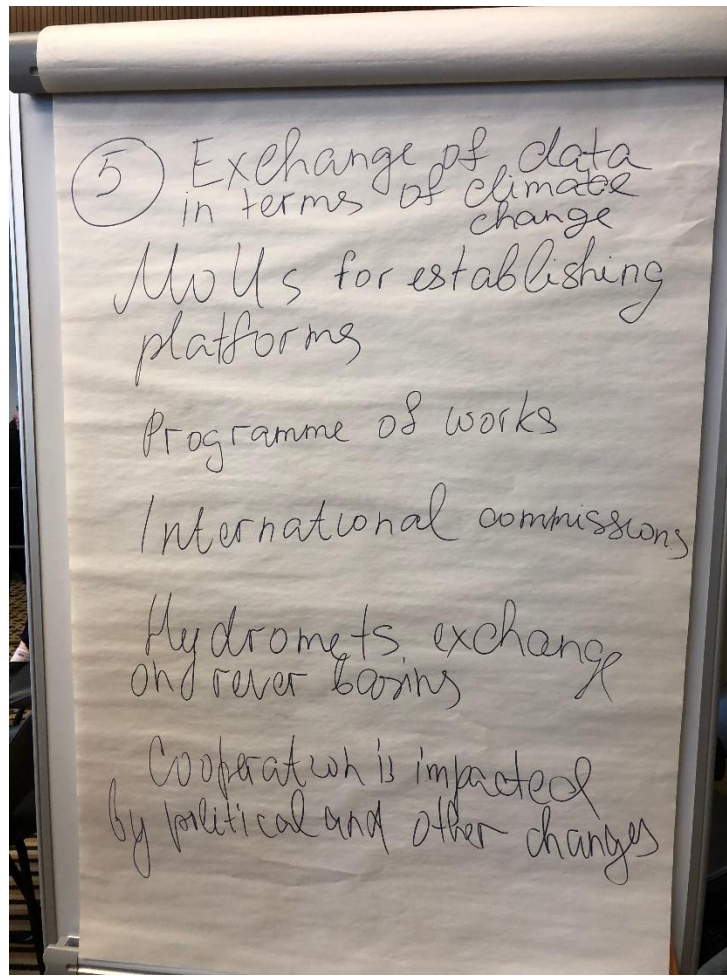 5 Exchange of data
in terms of climate
change
MoUs for establishing
platforms
Programme of works
International commissions
Hydromets exchange
on rever basins
Cooperation is impacted
by political and other changes